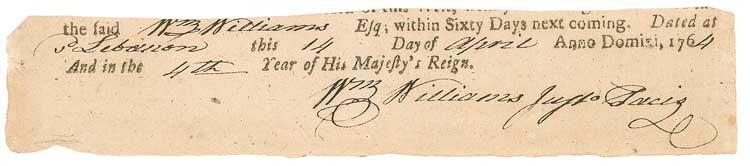 of this Writ,
the said Wm Williams Esq; within Sixty Days next coming. Dated at
sd Lebanon this 14 Day of April Anno Domini, 1764
And in the 4th Year of His Majesty's Reign.
Wm Williams Justo Pacis